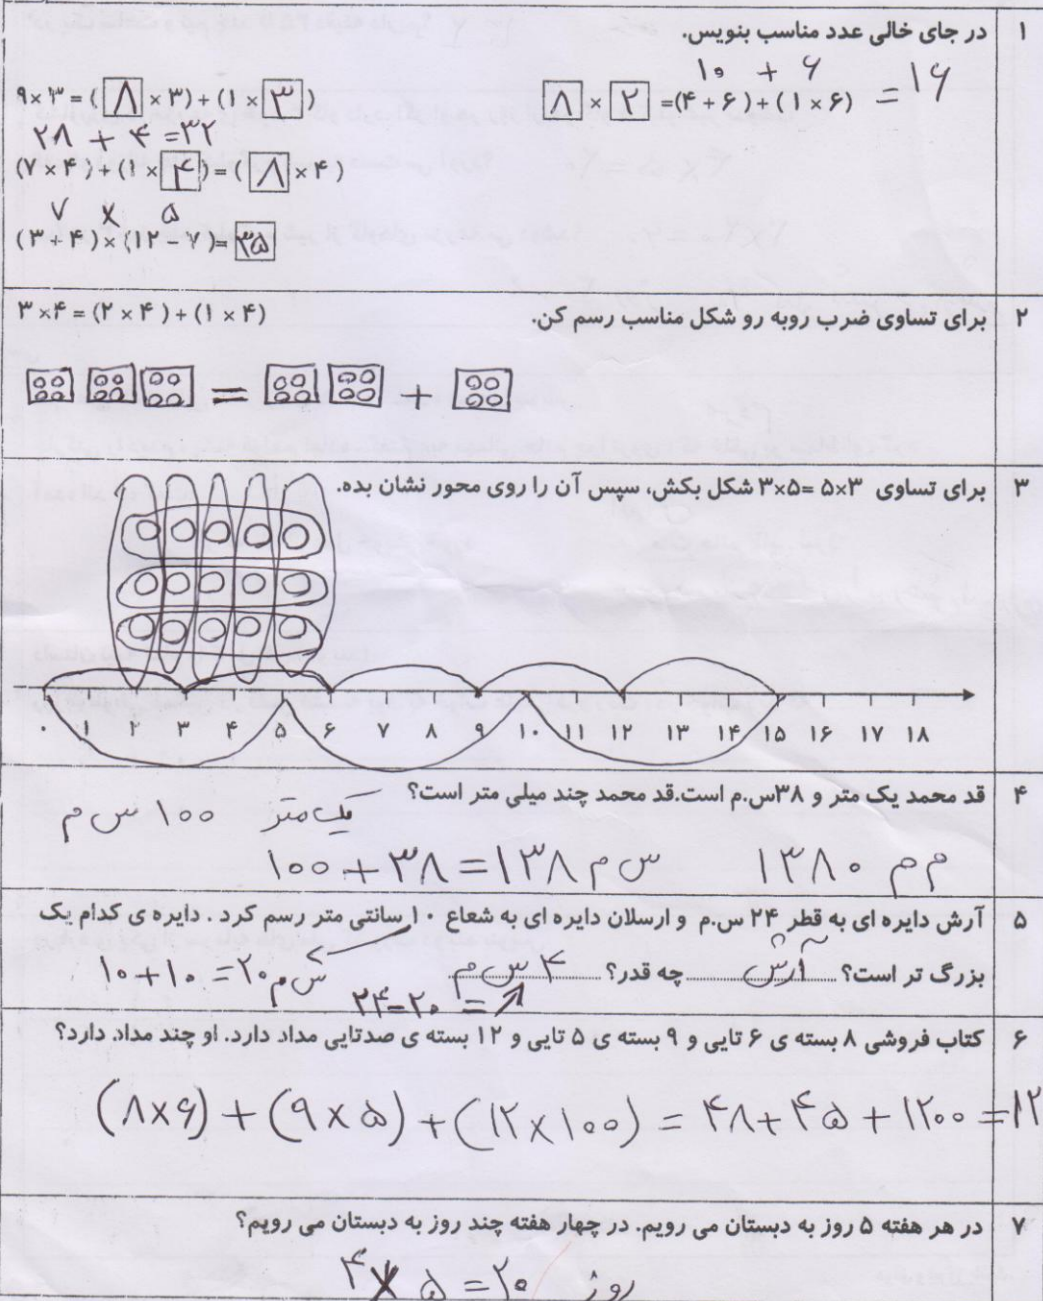 ۱ در جای خالی عدد مناسب بنویس.
۱۰ + ۶ = ۱۶
۸ × ۲ =(۴ + ۶) + (۱ × ۶)
۹×۳ = ( ۸ × ۳) + (۱ × ۳ )
۲۸ + ۴ = ۳۲
(۷ × ۴) + (۱ × ۴ ) = ( ۸ × ۴)
۷ × ۵
(۳ + ۴) × (۱۲ − ۷) = ۳۵
۲ برای تساوی ضرب روبه رو شکل مناسب رسم کن.
۳ ×۴ = (۲ × ۴ ) + (۱ × ۴)
= +
۳ برای تساوی ۳×۵= ۵×۳ شکل بکش، سپس آن را روی محور نشان بده.
۰ ۱ ۲ ۳ ۴ ۵ ۶ ۷ ۸ ۹ ۱۰ ۱۱ ۱۲ ۱۳ ۱۴ ۱۵ ۱۶ ۱۷ ۱۸
۴ قد محمد یک متر و ۳۸س.م است.قد محمد چند میلی متر است؟
یک متر ۱۰۰ س م
۱۰۰ + ۳۸ = ۱۳۸ س م
۱۳۸۰ م م
۵ آرش دایره ای به قطر ۲۴ س.م و ارسلان دایره ای به شعاع ۱۰ سانتی متر رسم کرد . دایره ی کدام یک
بزرگ تر است؟ آرش چه قدر؟ ۴ س م
۱۰+۱۰=۲۰ س م
۲۴−۲۰ =
۶ کتاب فروشی ۸ بسته ی ۶ تایی و ۹ بسته ی ۵ تایی و ۱۲ بسته ی صدتایی مداد دارد. او چند مداد دارد؟
(۸×۶) + (۹×۵) + (۱۲×۱۰۰) = ۴۸+۴۵+۱۲۰۰ = ۱۲
۷ در هر هفته ۵ روز به دبستان می رویم. در چهار هفته چند روز به دبستان می رویم؟
۴ × ۵ = ۲۰ روز